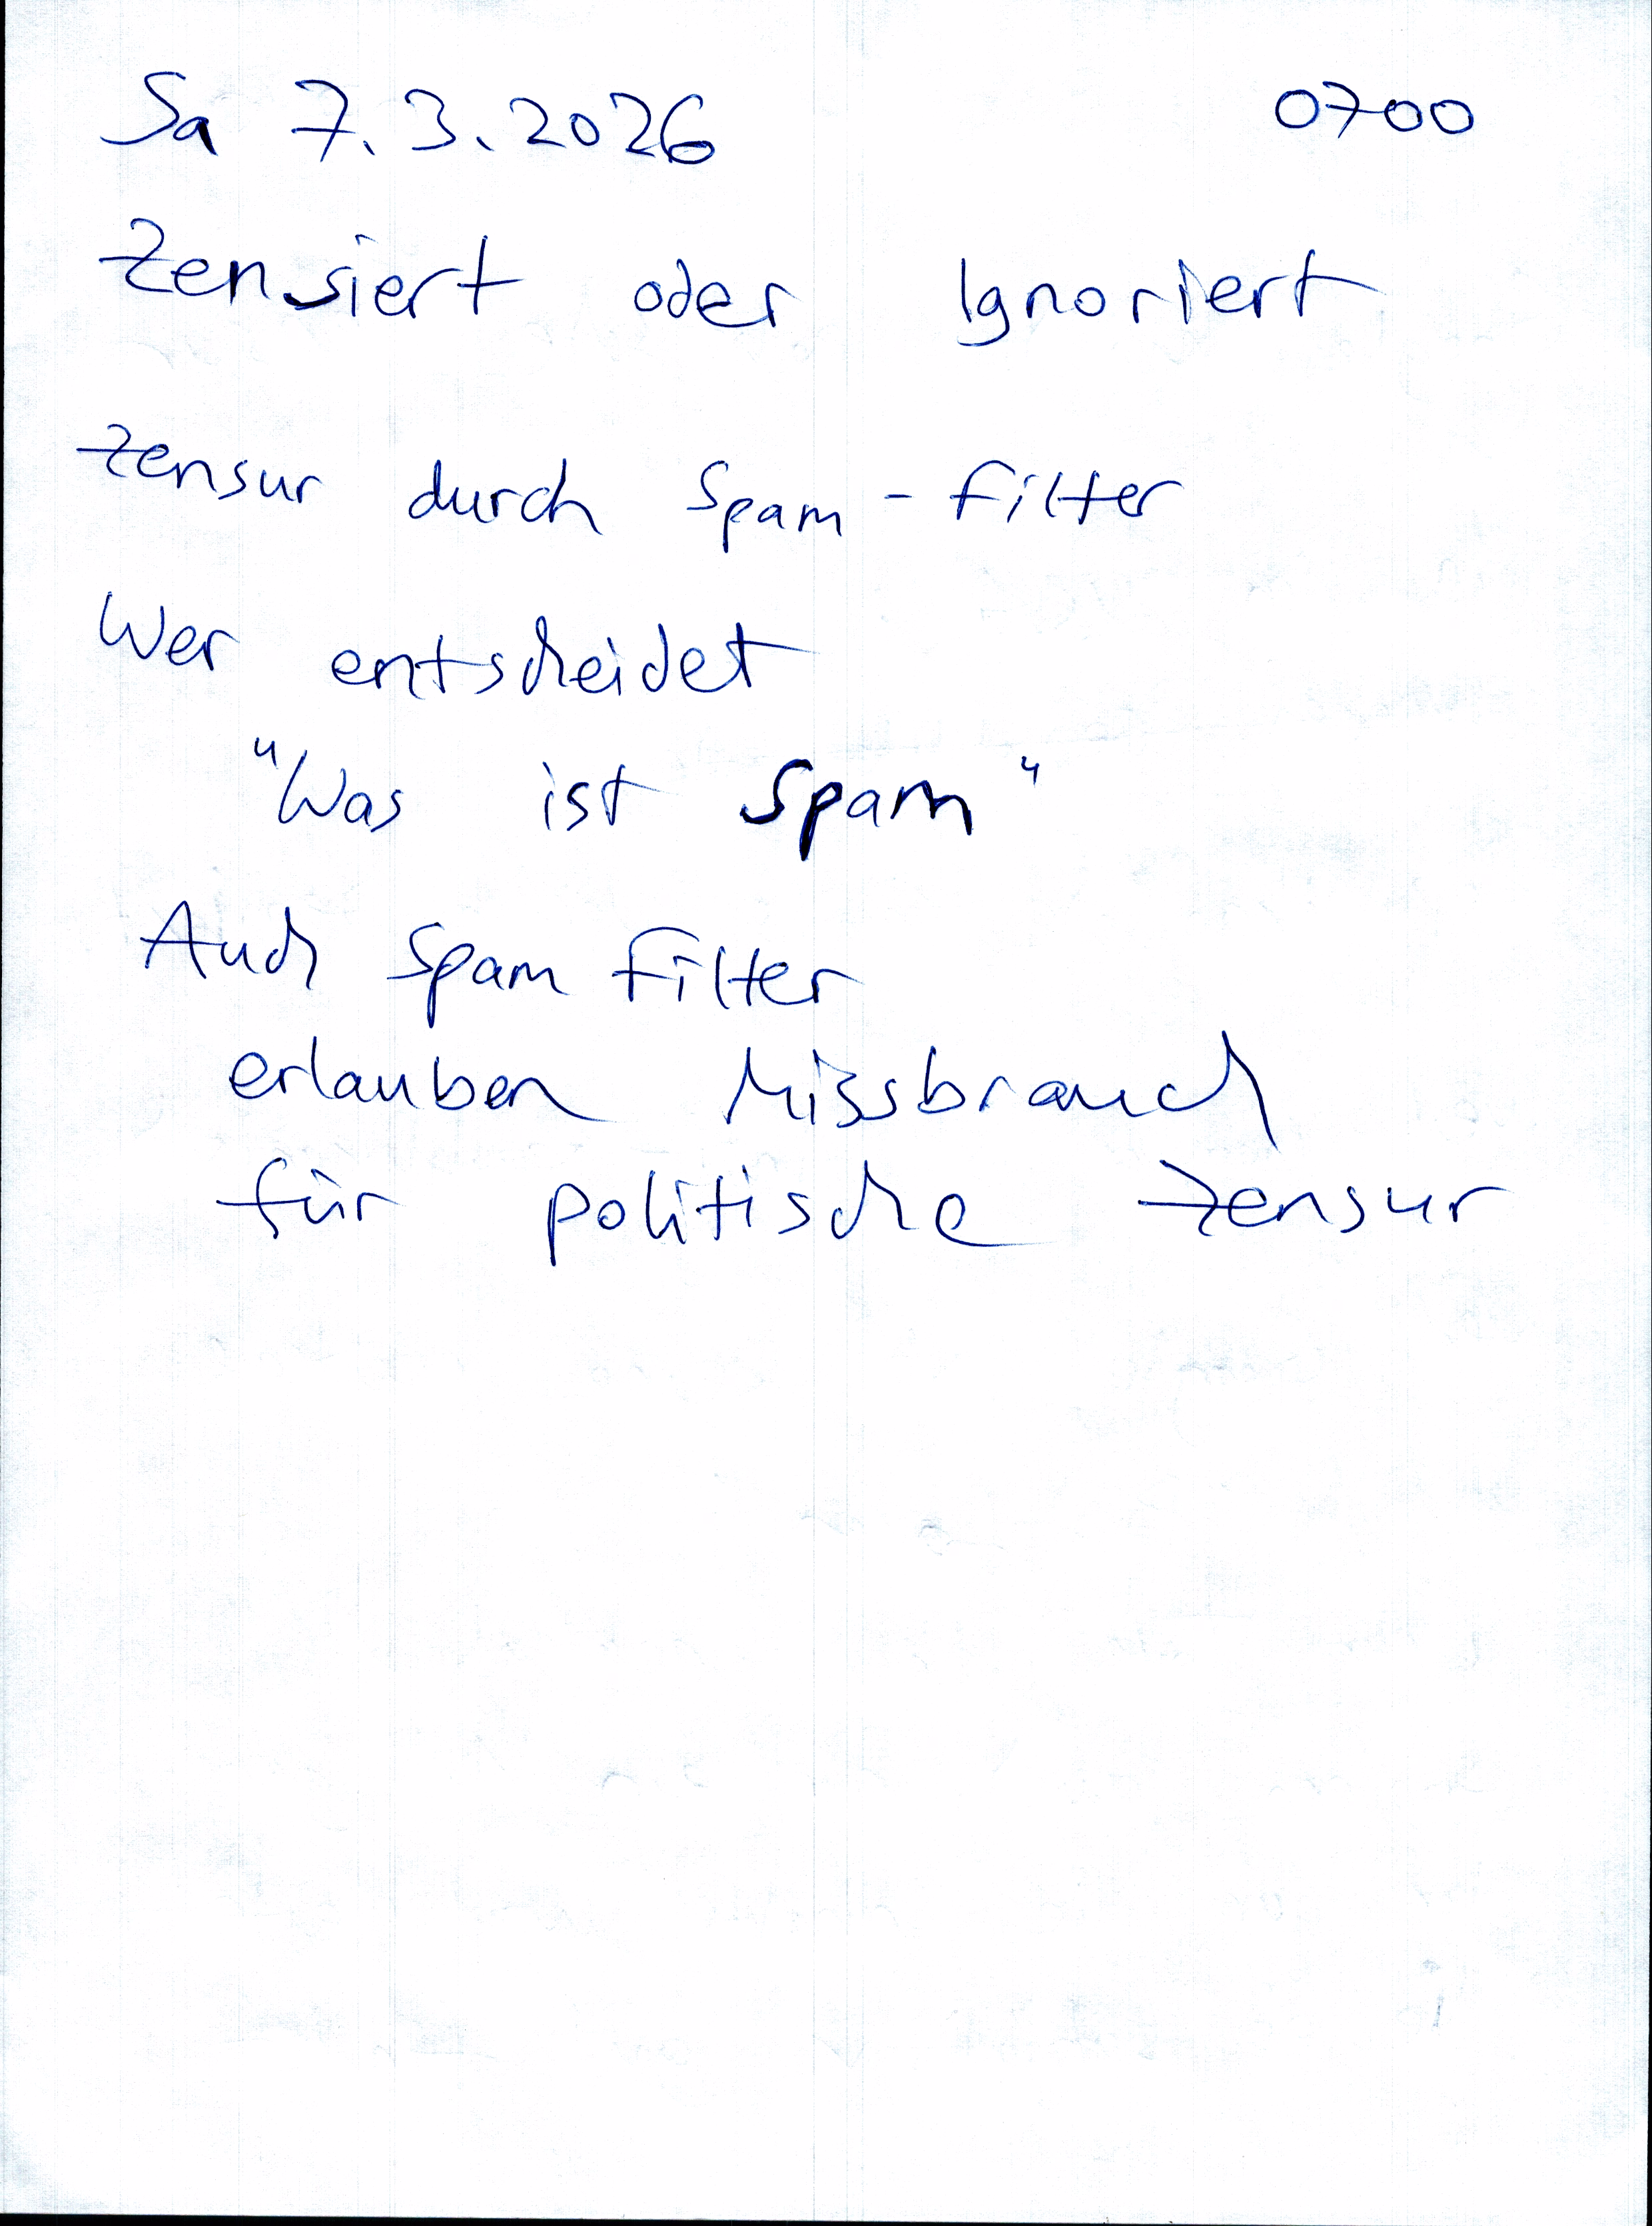 Sa 7.3.2026 0700
Zensiert oder Ignoriert
Zensur durch Spam-Filter
Wer entscheidet
"Was ist Spam"
Auch Spam Filter
erlauben Missbrauch
für politische Zensur